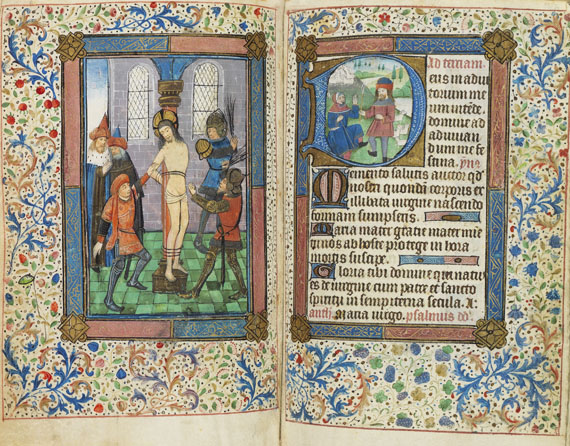 Ad terciam.
Deus in adiu
torium me
um intēde.
Domine ad
adiuuan
dum me fe
stina. yn̄s
Memento salutis auctor qd̄
nostri quondā corporis ex
illibata uirgine nascendo
formam sumpseris.
Maria mater gratie mater mie
nos ab hoste protege in hora
mortis suscipe.
Gloria tibi domine qui natus
es de uirgine cum patre et sancto
spiritu in sempiterna secula. A.
anth. Maria uirgo. psalmus